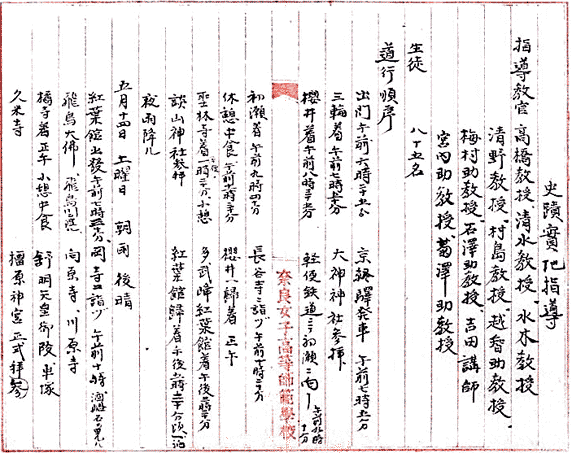 史蹟實地指導
指導教官 高橋教授、清水教授、水木教授
清野教授、村島教授、越智助教授、
梅村助教授、石澤助教授、吉田講師
宮内助教授、葛澤助教授
生徒 八十五名
道行順序
出門 午前六時三十五分 京終驛発車 午前七時五分
三輪着 午前七時 大神神社参拝
櫻井着 午前八時三十 軽便鉄道ニテ初瀬ニ向フ 午前九時十一分
奈良女子高等師範學校
初瀬着 午前九時四十分 長谷寺ニ詣ヅ 午前十時三十分
休憩中食 午前 櫻井ヘ帰着 正午
聖林寺着 一時三十分 小憩 多武峰紅葉館着 午後三時三十分
談山神社参拝 紅葉館帰着 午後五時三十分頃 一泊
夜雨降ル
五月十四日 土曜日 朝雨 後晴
紅葉館出發 午前七時 岡寺ニ詣ヅ 午前十時 酒船石ヲ見ル
飛鳥大佛 飛鳥 向原寺、川原寺
橘寺着 正午 小憩中食 舒明天皇御陵
久米寺 橿原神宮正式拝参